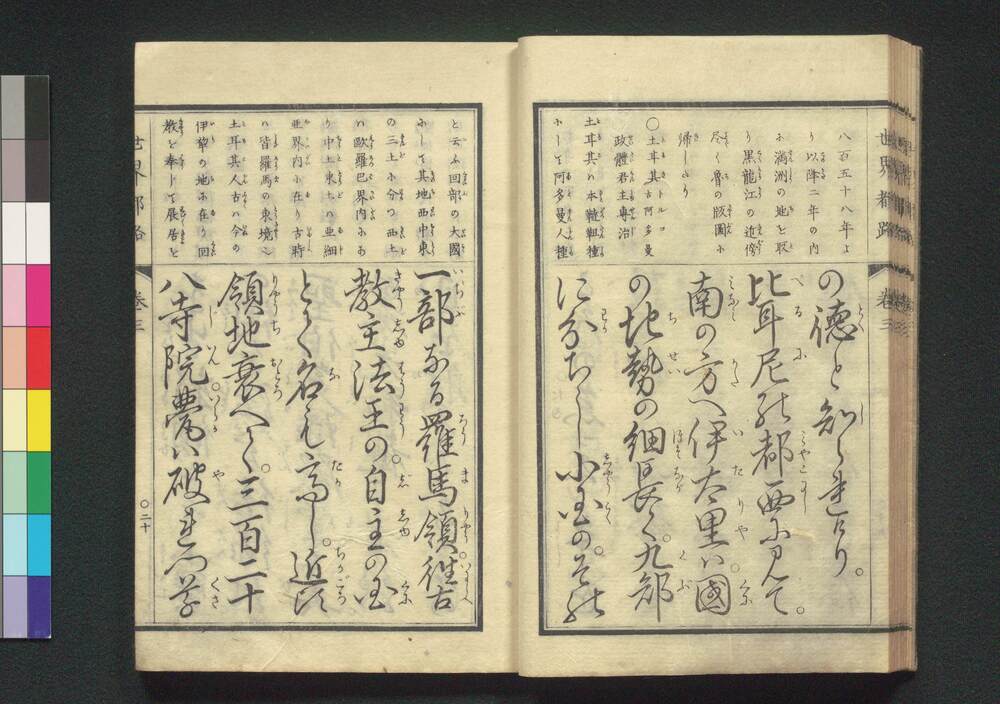 世界都路 巻三
八百五十八年よ
り以降二年の内
に満洲の地を取
り黒龍江の近傍
尽く魯の版圖に
帰したり
○土耳其 古阿多曼
政體君主専治
土耳其ハ本韃靼種
にして阿多曼人種
の徳と知られけり。
比耳尼の都西に見て。
南の方へ伊太里ハ國
の地勢の細長く九部
に分ちし小国の。その
と云ふ回部の大國
にして其地西中東
の三土に分つ西土
ハ歐羅巴界内にあ
り中土東土ハ亜細
亜界内に在り古時
ハ皆羅馬の東境
土耳其人古ハ今の
伊犂の地に在り回
教を奉じて展居を
一部なる羅馬領。徃古
教主法王の。自主の国
とて名も高し。近頃
領地衰へて。三百二十
八寺院。甍ハ破れつ草
世界都路 巻三
○二十